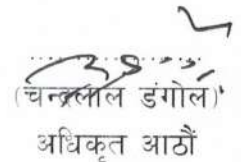 (चन्द्रलाल डंगोल)
अधिकृत आठौं